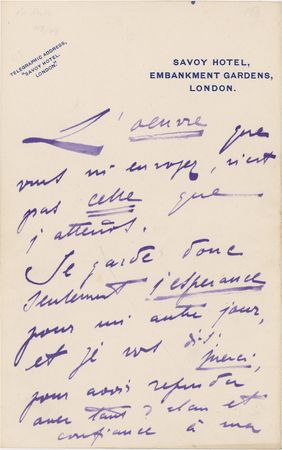 TELEGRAPHIC ADDRESS,
"SAVOY HOTEL,
LONDON."
SAVOY HOTEL,
EMBANKMENT GARDENS,
LONDON.
L'oeuvre que
vous m'envoyez, n'est
pas celle que
j'attends.
Je garde donc
seulement j'esperance
pour un autre jour,
et je vos dis:
merci,
pour avois repondu
avec tant d'elan et
confiance à ma